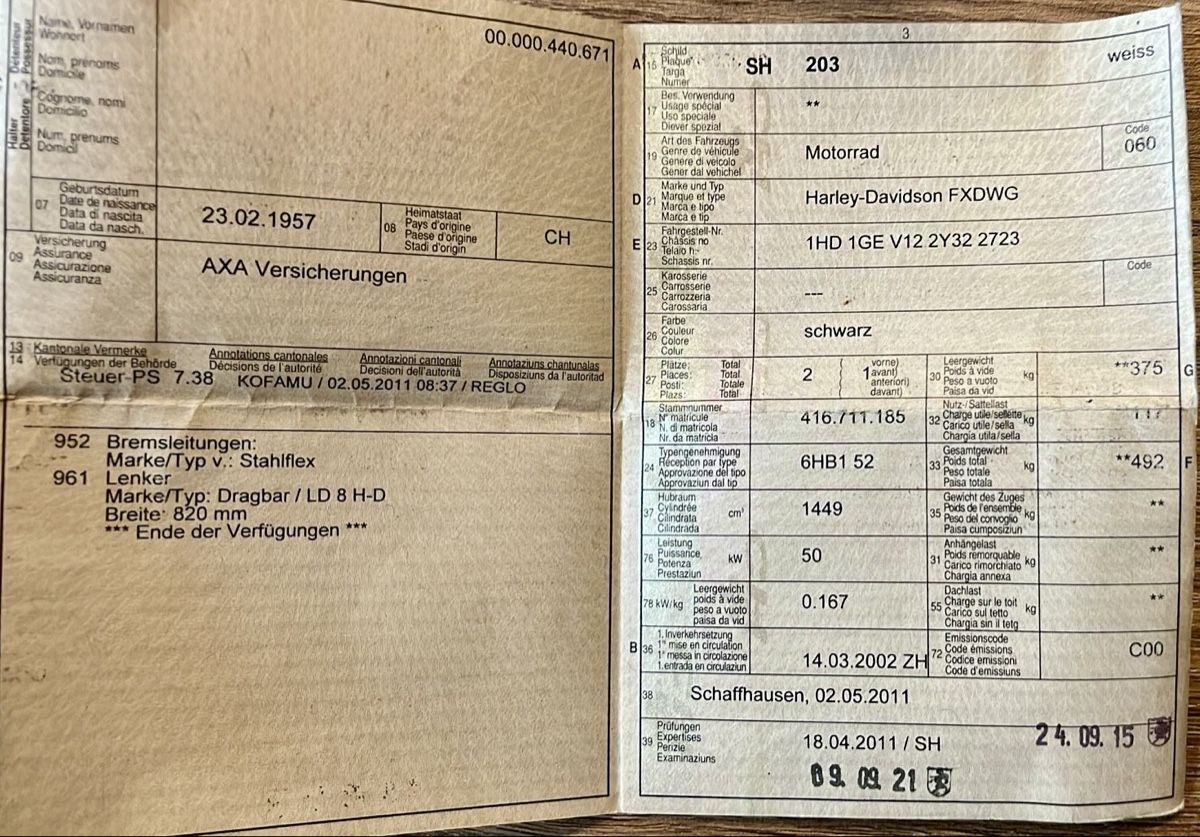 Halter Detenteur
Detentore Possessur
Name, Vornamen
Wohnort
Nom, prénoms
Domicile
Cognome, nomi
Domicilio
Num, prenums
Domicil
00.000.440.671
07
Geburtsdatum
Date de naissance
Data di nascita
Data da nasch.
23.02.1957
08
Heimatstaat
Pays d'origine
Paese d'origine
Stadi d'origin
CH
09
Versicherung
Assurance
Assicurazione
Assicuranza
AXA Versicherungen
13 Kantonale Vermerke Annotations cantonales Annotazioni cantonali Annotaziuns chantunalas
14 Verfügungen der Behörde Décisions de l'autorité Decisioni dell'autorità Disposiziuns da l'autoritad
Steuer-PS 7.38 KOFAMU / 02.05.2011 08:37 / REGLO
952 Bremsleitungen:
Marke/Typ v.: Stahlflex
961 Lenker
Marke/Typ: Dragbar / LD 8 H-D
Breite: 820 mm
*** Ende der Verfügungen ***
3
A 15
Schild
Plaque
Targa
Numer
SH 203
weiss
17
Bes. Verwendung
Usage spécial
Uso speciale
Diever spezial
**
19
Art des Fahrzeugs
Genre de véhicule
Genere di veicolo
Gener dal vehichel
Motorrad
Code
060
D 21
Marke und Typ
Marque et type
Marca e tipo
Marca e tip
Harley-Davidson FXDWG
E 23
Fahrgestell-Nr.
Châssis no
Telaio n.
Schassis nr.
1HD 1GE V12 2Y32 2723
25
Karosserie
Carrosserie
Carrozzeria
Carossaria
---
Code
26
Farbe
Couleur
Colore
Colur
schwarz
27
Plätze: Total
Places: Total
Posti: Totale
Plazs: Total
2
1
vorne)
avant)
anteriori)
davant)
30
Leergewicht
Poids à vide
Peso a vuoto
Paisa da vid
kg
**375
G
18
Stammnummer
N° matricule
N. di matricola
Nr. da matricla
416.711.185
32
Nutz-/Sattellast
Charge utile/sellette
Carico utile/sella
Chargia utila/sella
kg
24
Typengenehmigung
Réception par type
Approvazione del tipo
Approvaziun dal tip
6HB1 52
33
Gesamtgewicht
Poids total
Peso totale
Paisa totala
kg
**492
F
37
Hubraum
Cylindrée
Cilindrata
Cilindrada
cm³
1449
35
Gewicht des Zuges
Poids de l'ensemble
Peso del convoglio
Paisa cumposiziun
kg
**
76
Leistung
Puissance
Potenza
Prestaziun
kW
50
31
Anhängelast
Poids remorquable
Carico rimorchiato
Chargia annexa
kg
**
78 kW/kg
Leergewicht
poids à vide
peso a vuoto
paisa da vid
0.167
55
Dachlast
Charge sur le toit
Carico sul tetto
Chargia sin il tetg
kg
**
B 36
1. Inverkehrsetzung
1re mise en circulation
1a messa in circolazione
1. entrada en circulaziun
14.03.2002 ZH
72
Emissionscode
Code émissions
Codice emissioni
Code d'emissiuns
C00
38
Schaffhausen, 02.05.2011
39
Prüfungen
Expertises
Perizie
Examinaziuns
18.04.2011 / SH
24. 09. 15
09. 09. 21